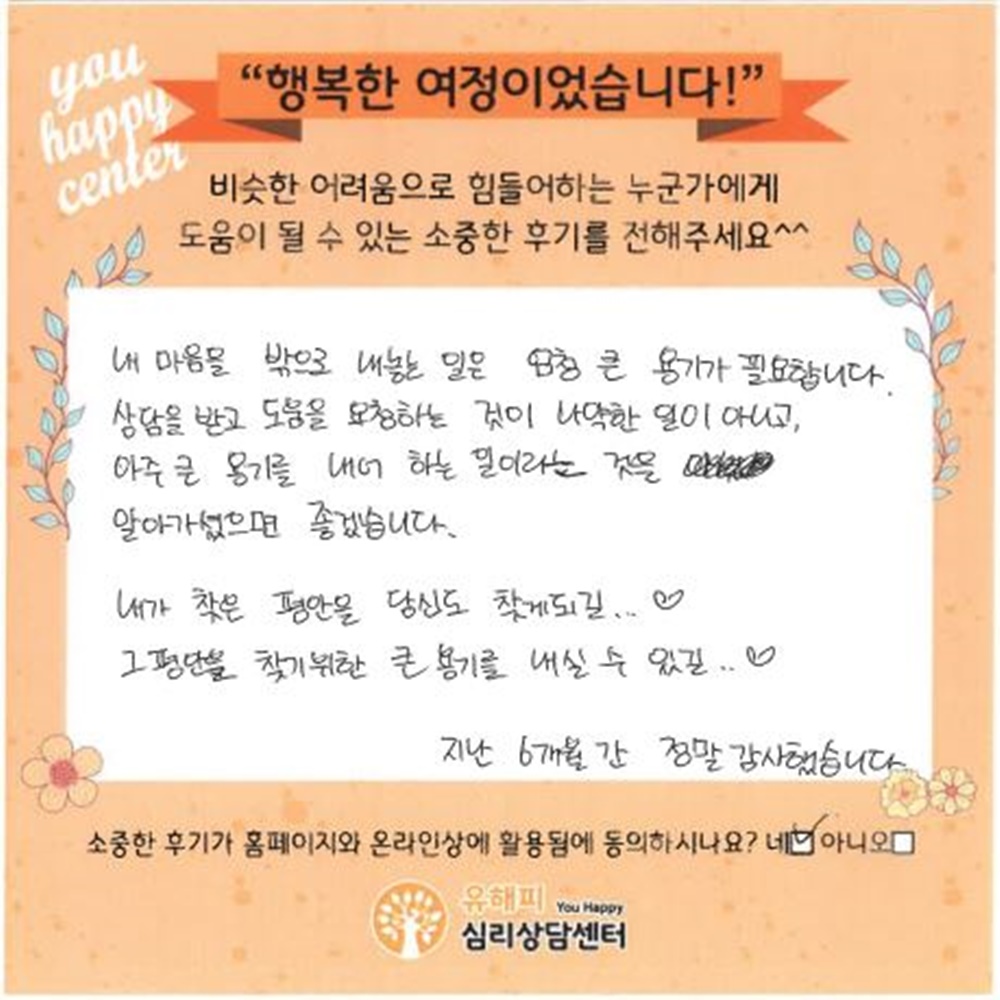 you
happy
center
“행복한 여정이었습니다!”
비슷한 어려움으로 힘들어하는 누군가에게
도움이 될 수 있는 소중한 후기를 전해주세요^^
내 마음을 밖으로 내놓는 일은 엄청 큰 용기가 필요합니다.
상담을 받고 도움을 요청하는 것이 나약한 일이 아니고,
아주 큰 용기를 내어 하는 일이라는 것을
알아가셨으면 좋겠습니다.
내가 찾은 평안을 당신도 찾게되길... ♡
그 평안을 찾기위한 큰 용기를 내실 수 있길.. ♡
지난 6개월 간 정말 감사했습니다.
소중한 후기가 홈페이지와 온라인상에 활용됨에 동의하시나요? 네☑ 아니오□
유해피 You Happy
심리상담센터